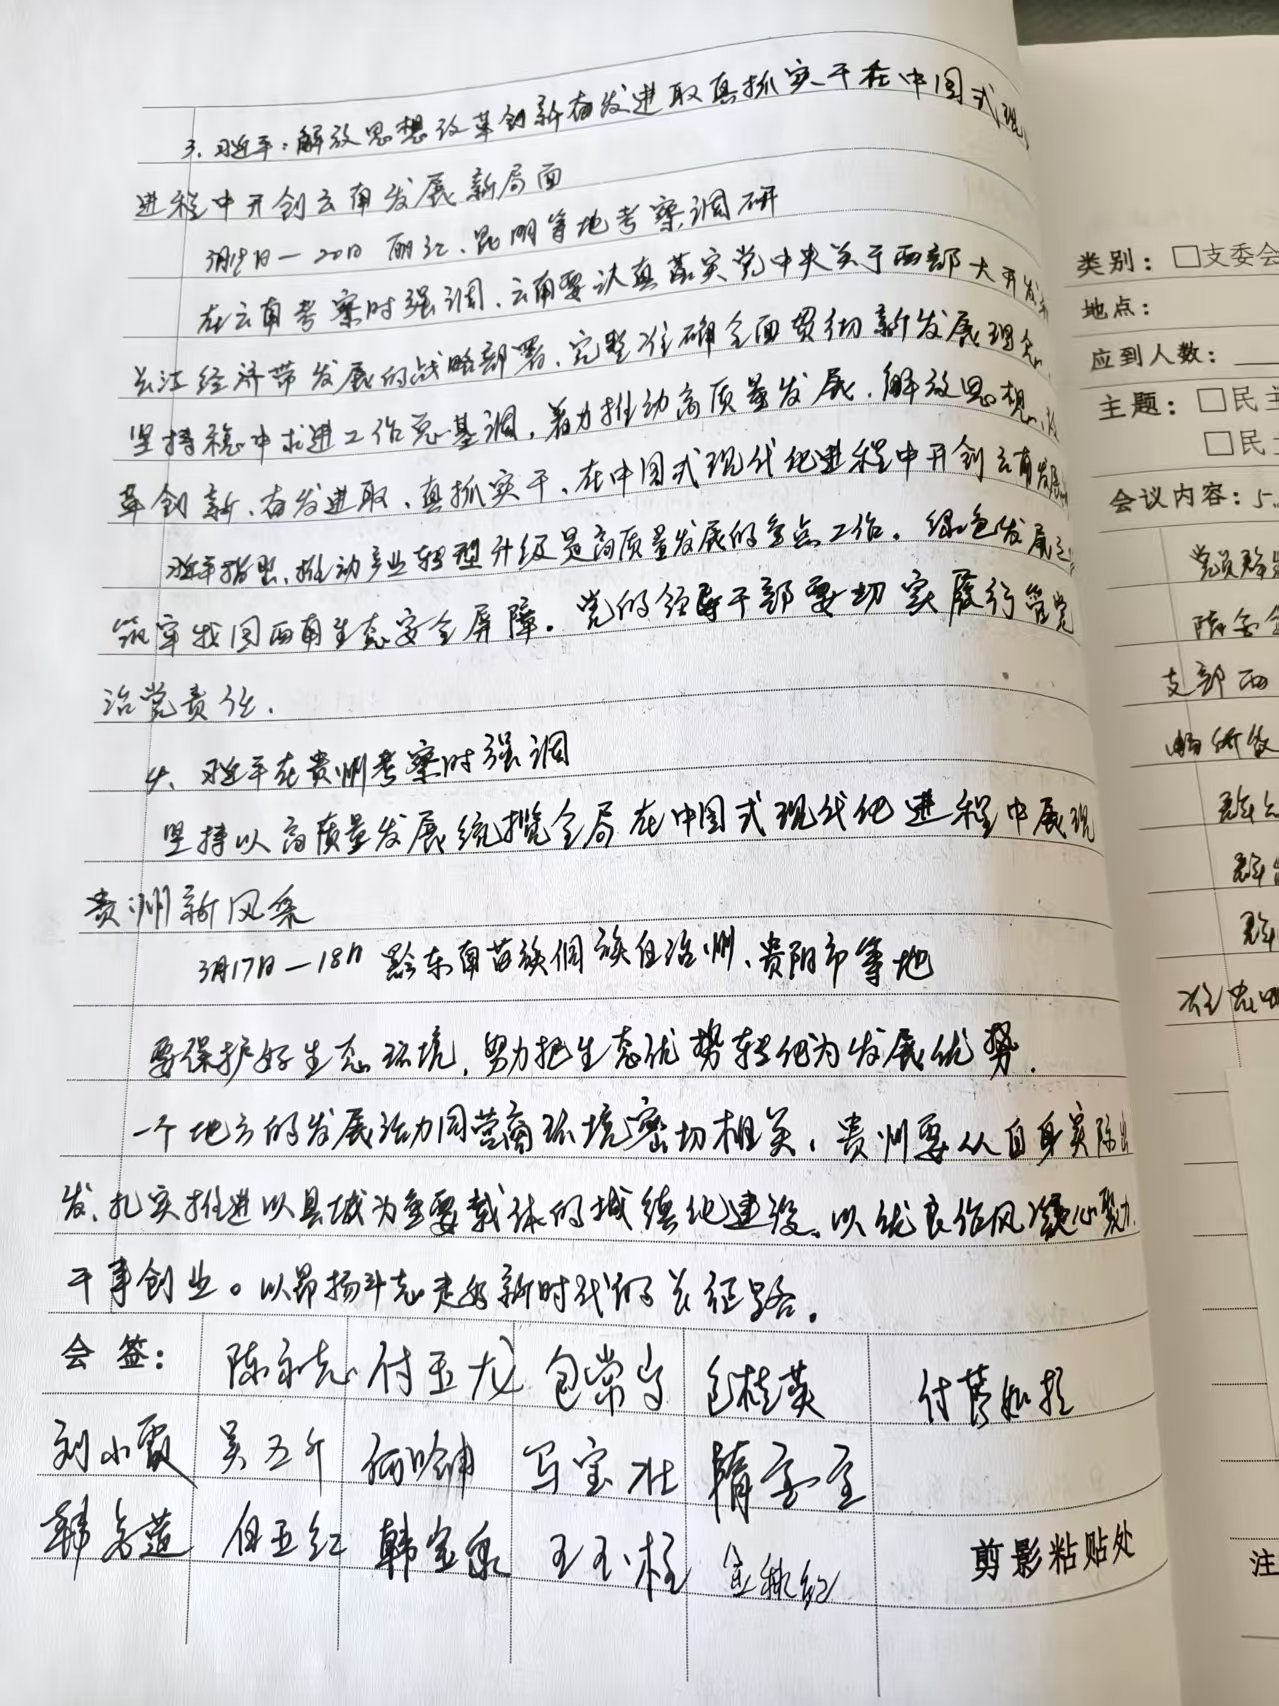 3、习近平：解放思想改革创新奋发进取真抓实干在中国式现
进程中开创云南发展新局面
3月19日—20日 丽江、昆明等地考察调研
在云南考察时强调，云南要认真落实党中央关于西部大开发和
长江经济带发展的战略部署、完整准确全面贯彻新发展理念、
坚持稳中求进工作总基调，着力推动高质量发展，解放思想、改
革创新、奋发进取、真抓实干、在中国式现代化进程中开创云南发展
习近平指出，推动产业转型升级是高质量发展的重点工作。绿色发展
筑牢我国西南生态安全屏障。党的领导干部要切实履行管党
治党责任.
4、习近平在贵州考察时强调
坚持以高质量发展统揽全局在中国式现代化进程中展现
贵州新风采
3月17日—18日 黔东南苗族侗族自治州、贵阳市等地
要保护好生态环境，努力把生态优势转化为发展优势.
一个地方的发展活力同营商环境密切相关，贵州要从自身实际出
发、扎实推进以县城为重要载体的城镇化建设。以优良作风凝心聚力、
干事创业。以昂扬斗志走好新时代的长征路。
会 签： 陈永志 付玉龙 包常 包桂英
刘小霞 吴五 宝柱
韩 白玉红 韩宝泉 王玉柱
剪影粘贴处
类别：□支委会
地点：
应到人数：
主题：□民主
□民主
会议内容：
党员
支部
注